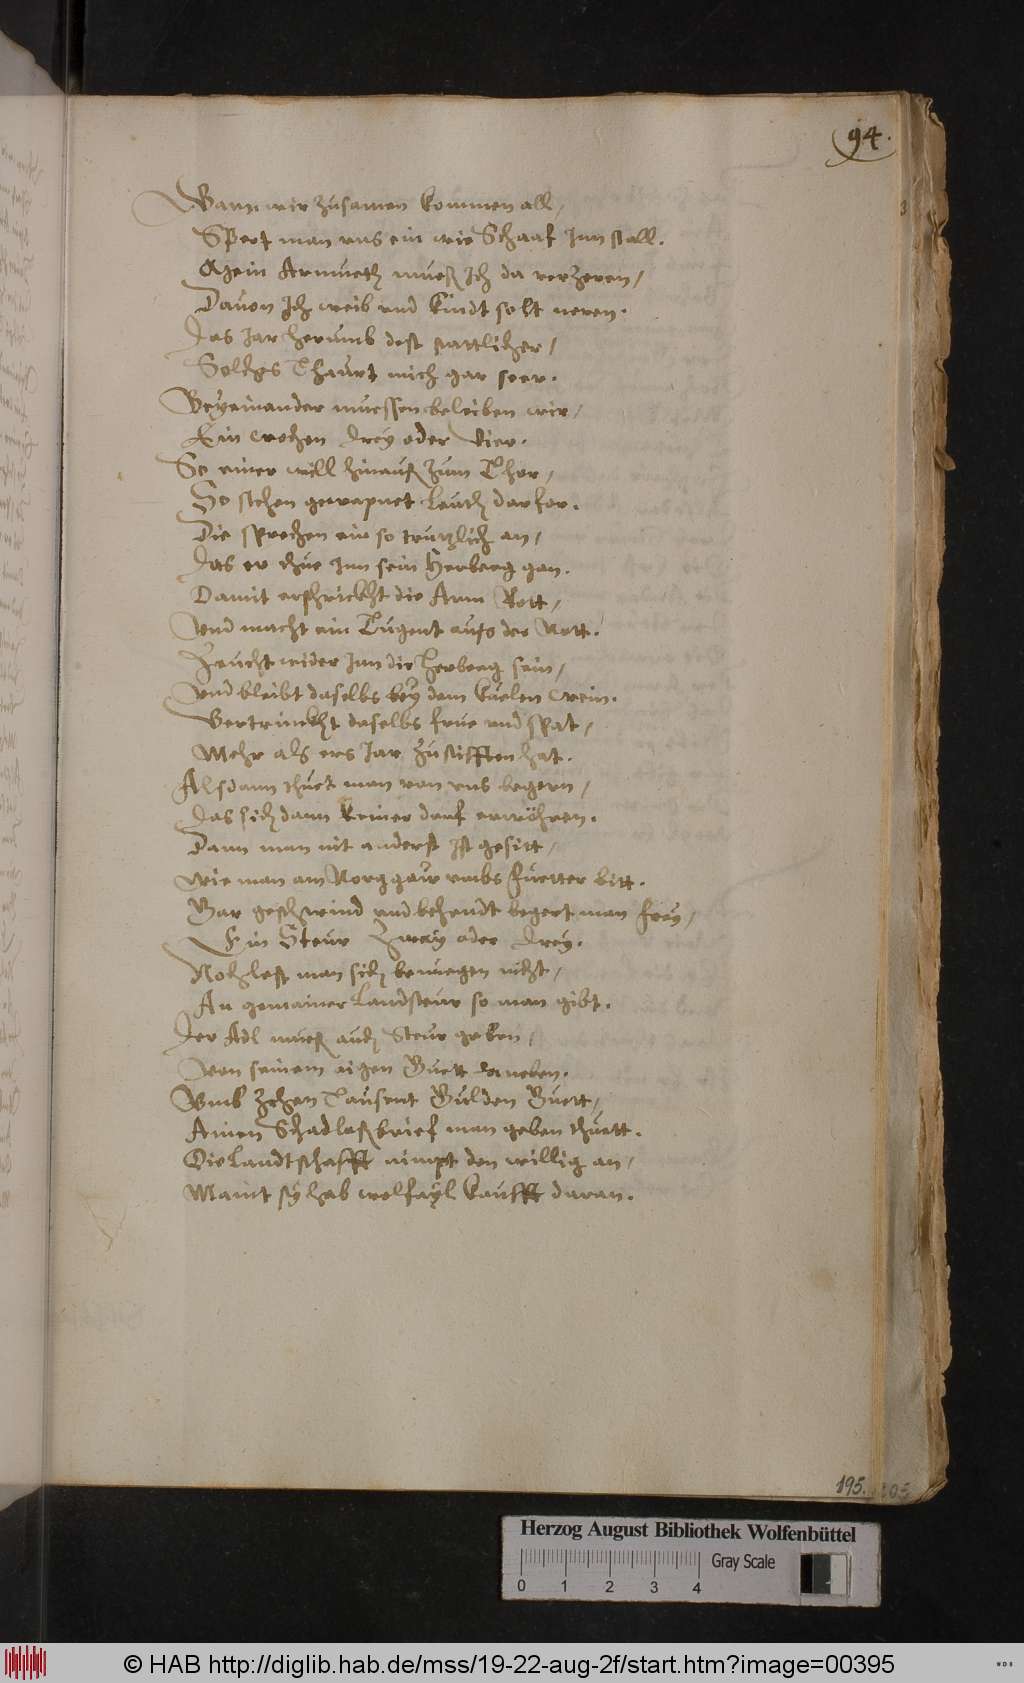 94.
Wann wir zusamen kommen all,
Spert man uns ein wie Schaaf Inn stall.
Mein Armueth mueß Ich da verzeren,
Davon Ich weib und Kindt solt neren.
Das Jar herumb dest stattlicher,
Solches Thaurt mich gar seer.
Beyeinander muessen beleiben wir,
Ein wochen drey oder Vier.
So einer will hinauß zum Thor,
So stehen gewapnet Leuth darfor.
Die sprechen ein so trutzlich an,
Das er thue Inn sein Herberg gan.
Damit erschrickht die Arm Rott,
Und macht ein Tugent aufs der Nott.
Zeucht wider Inn die Herberg sein,
Und bleibt daselbs bey dem kuelen wein.
Vertrinckht daselbs frue und spat,
Mehr als ers Jar Zustifften hat.
Alsdann thuet man von uns begern,
Das sich dann keiner darf erwöhren.
Dann man nit anderst Ist gesitt,
Wie man am Norggaw umbs fuetter bitt.
Gar geschwind und behendt begert man frey,
Ein Steur Zway oder drey.
Noch lest man sich benuegen nicht,
An gemainer Landsteur so man gibt.
Der Adl mueß auch Steur geben,
Von seinem aigen Guett darneben.
Umb Zehen Tausent Gulden Guett,
Ainen Schadloßbrief man geben thuett.
Die Landtschafft nimpt den willig an,
Maint sy hab wolfayl Kaufft daran.
195.
Herzog August Bibliothek Wolfenbüttel
Gray Scale
0 1 2 3 4
© HAB http://diglib.hab.de/mss/19-22-aug-2f/start.htm?image=00395